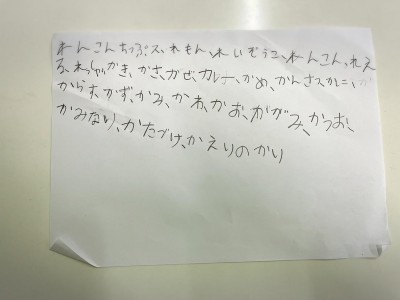 れんこんちっぷス、れもん、れいぞうこ、れんこん、れえ
る、れっしゃ、かき、かさ、かぜ、カレー、かめ、かんさス、かに、
からす、かず、かみ、かね、かお、かがみ、かつお、
かみなり、かたづけ、かえりのかい